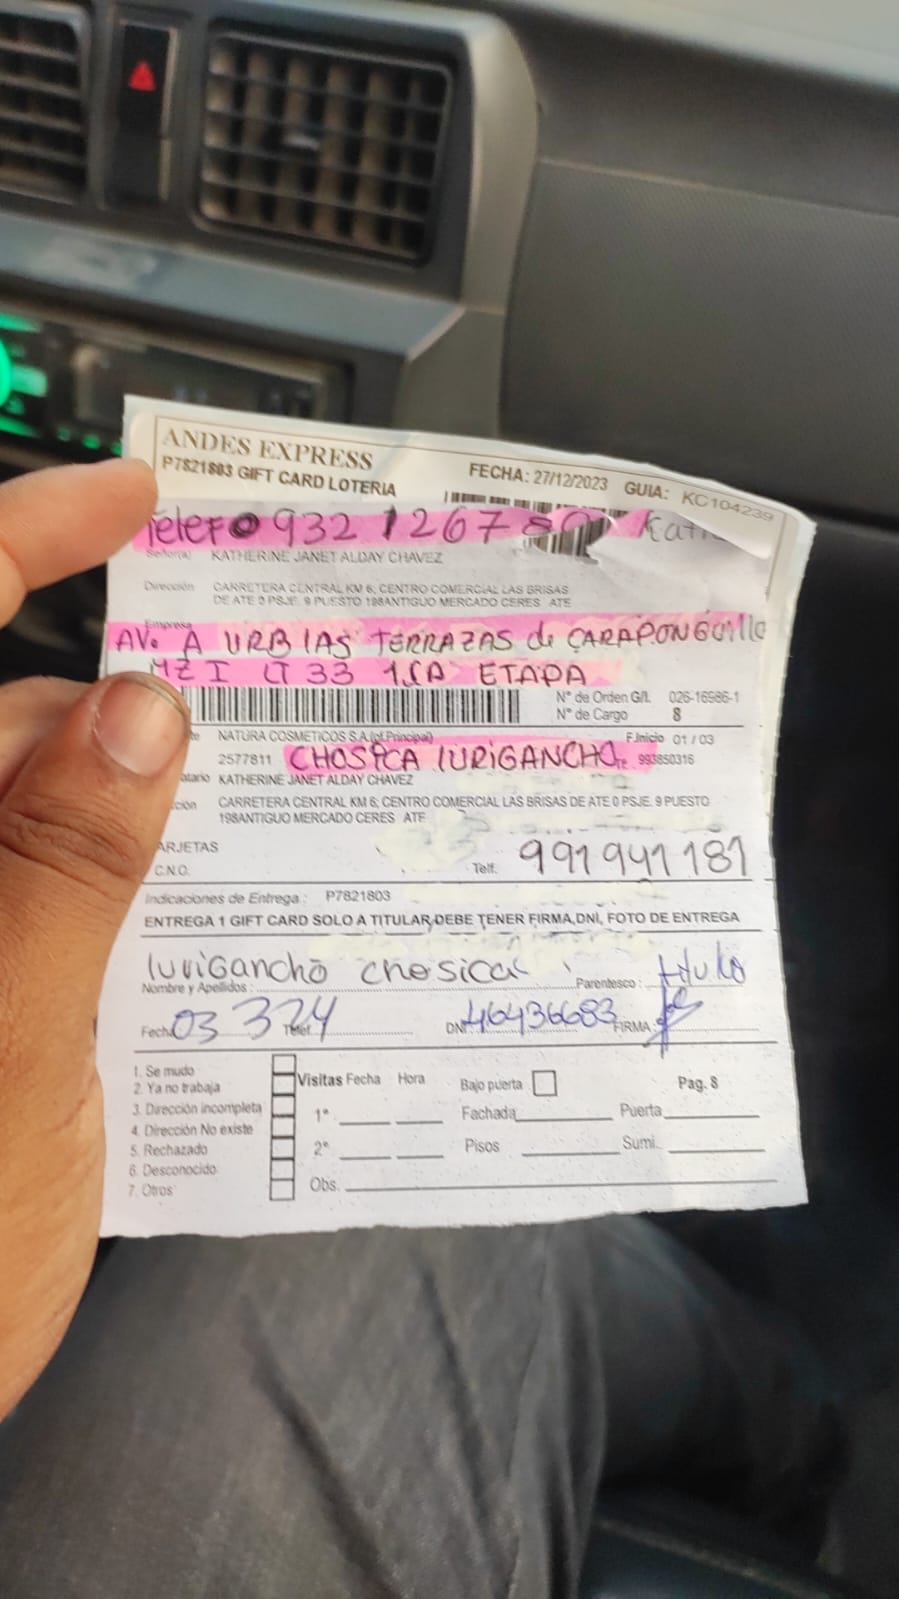 ANDES EXPRESS
P7821803 GIFT CARD LOTERIA
FECHA: 27/12/2023 GUIA: KC104239
Telef 932 1267
Señor(a) KATHERINE JANET ALDAY CHAVEZ
Dirección CARRETERA CENTRAL KM 6; CENTRO COMERCIAL LAS BRISAS
DE ATE 0 PSJE. 9 PUESTO 198ANTIGUO MERCADO CERES ATE
Empresa
AV. A URB LAS TERRAZAS de CARAPONGUILLO
MZ I LT 33 1RA ETAPA
N° de Orden G/I. 026-16986-1
N° de Cargo 8
NATURA COSMETICOS S.A (of.Principal) F.Inicio 01 / 03
2577811 CHOSICA LURIGANCHO 993850316
KATHERINE JANET ALDAY CHAVEZ
CARRETERA CENTRAL KM 6; CENTRO COMERCIAL LAS BRISAS DE ATE 0 PSJE. 9 PUESTO
198ANTIGUO MERCADO CERES ATE
ARJETAS
C.N.O. Telf. 991941181
Indicaciones de Entrega : P7821803
ENTREGA 1 GIFT CARD SOLO A TITULAR,DEBE TENER FIRMA,DNI, FOTO DE ENTREGA
lurigancho chosica titulo
Nombre y Apellidos : Parentesco :
Fecha 03 3 24 Telef. DNI 46436683 FIRMA :
1. Se mudo
2. Ya no trabaja
3. Dirección incompleta
4. Dirección No existe
5. Rechazado
6. Desconocido
7. Otros
Visitas Fecha Hora Bajo puerta Pag. 8
1° Fachada Puerta
2° Pisos Sumi.
Obs.